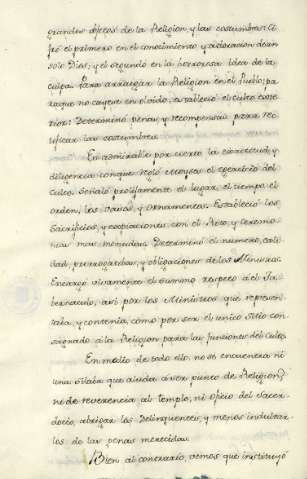 grandes objetos de la Religion, y las costumbres: ci
fró el primero en el conocimiento, y adoracion de un
solo Dios; y el segundo en la horrorosa idea de la
culpa. Para arraigar la Religion en el Pueblo; pa
raque no cayese en olvido, establecio el culto exte
rior: Determinó penas, y recompensas para rec
tificar las costumbres.
Es admirable por cierto la exactitud, y
diligencia conque regló el exercicio del
culto. Señaló prolijamente el lugar, el tiempo, el
orden, los vasos, y ornamentos. Estableció los
Sacrificios, y expiaciones con el Rito, y ceremo
nias mas menudas. Determinó el numero, cali
dad, prerrogativas, y obligaciones de los Ministros.
Encargó vivamente el sumo respeto del Ta
bernaculo, asi por los Ministros que represen
taba, y contenia, como por ser el unico sitio con
sagrado á la Religion para las funciones del culto.
En medio de todo ello no se encuentra ni
una silaba que aluda á ser punto de Religion,
ni de reverencia al templo, ni oficio del Sacer
docio, abrigar los Delinquentes, y menos indultar
los de las penas merecidas.
Bien al contrario, vemos que instituyó